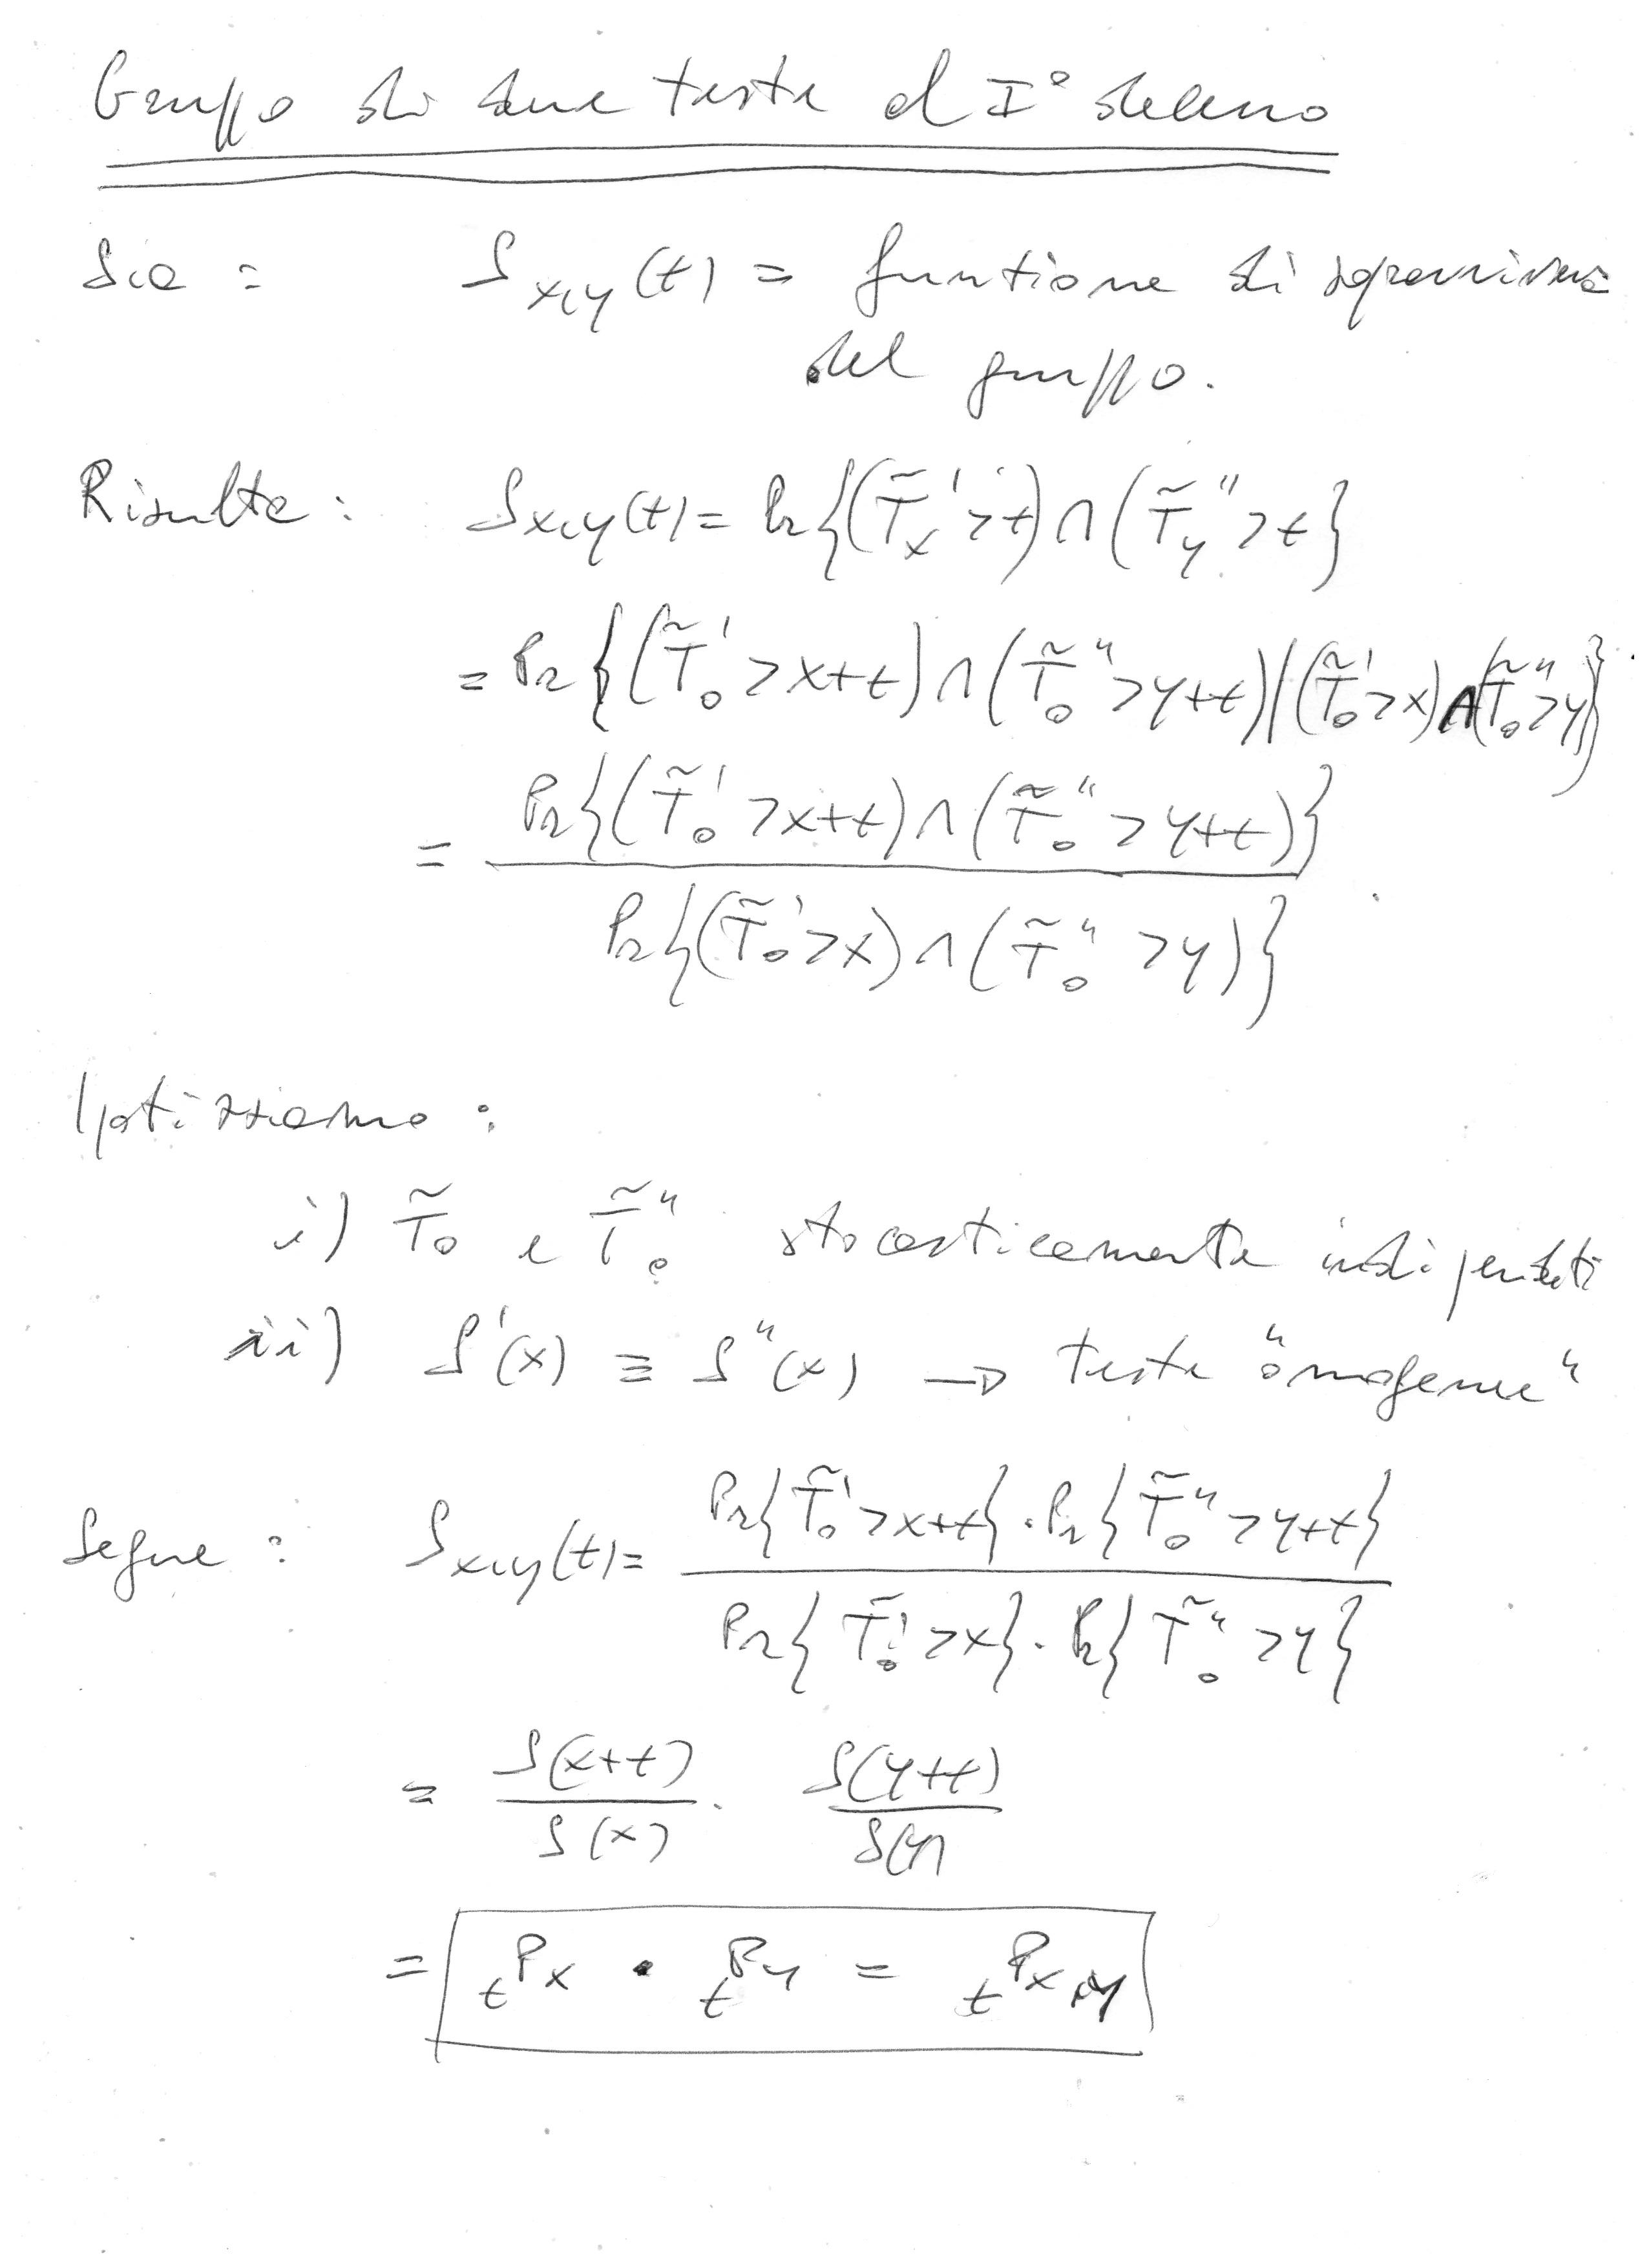 Gruppo di due teste al I° decesso
Sia : S_{x,y}(t) = funzione di sopravvivenza
del gruppo.
Risulta : S_{x,y}(t) = Pr{(T̃'_x > t) ∩ (T̃''_y > t}
= Pr{(T̃'_0 > x+t) ∩ (T̃''_0 > y+t) / (T̃'_0 > x) ∩ (T̃''_0 > y)}
= Pr{(T̃'_0 > x+t) ∩ (T̃''_0 > y+t)}
Pr{(T̃'_0 > x) ∩ (T̃''_0 > y)}
Ipotizziamo :
i) T̃_0 e T̃''_0 stocasticamente indipendenti
ii) S'(x) ≡ S''(x) → teste "omogenee"
Segue : S_{x,y}(t) = Pr{T̃'_0 > x+t} · Pr{T̃''_0 > y+t}
Pr{T̃'_0 > x} · Pr{T̃''_0 > y}
= S(x+t) · S(y+t)
S(x) S(y)
= _tP_x · _tP_y = _tP_{x,y}